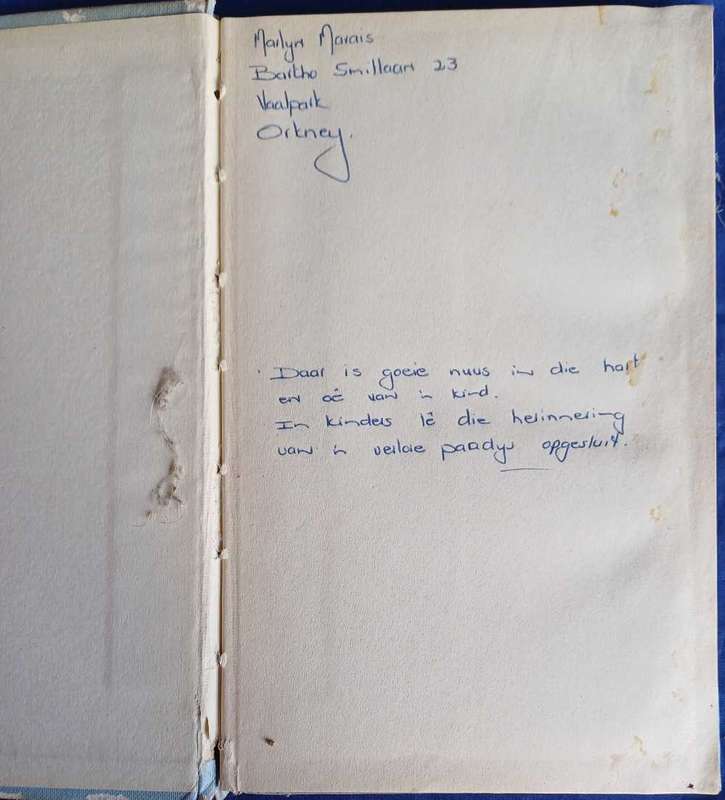 Marlyn Marais
Bartho Smitlaan 23
Vaalpark
Orkney.
Daar is goeie nuus in die hart
en oë van 'n kind.
In kinders lê die herinnering
van 'n verlore paradys opgesluit.